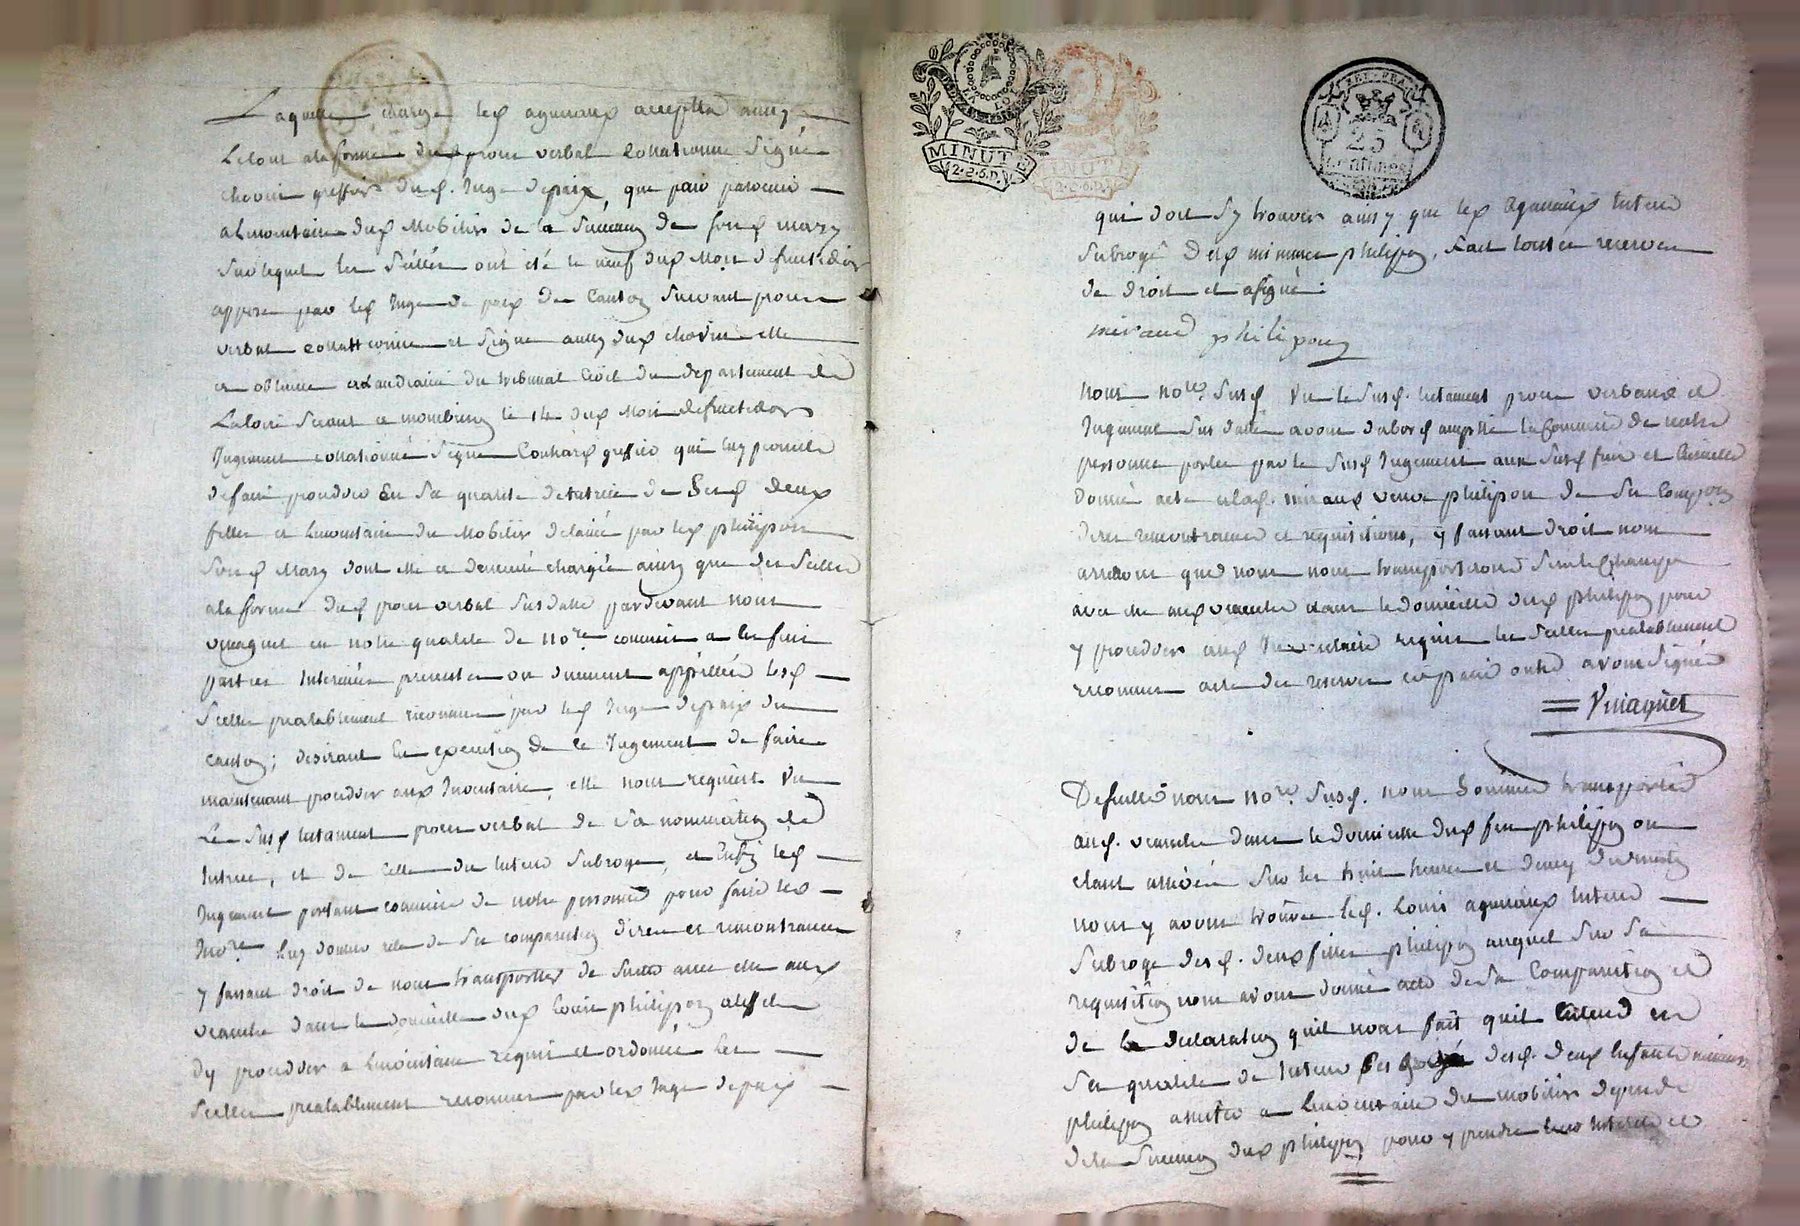 Laquelle charge led agneaux acceptta aussy
Letout alaforme dud proces verbal Collationné Signé
chovin greffier dud. Juge depaix, que pour parvenir
a linventaire dud Mobilier de la Succession de son d mary
Sur lequel les Scellés ont été le neuf dud Mois defructidor
apposé par led Juge de paix du Canton Suivant proces
verbal collationné et Signé aussy dud chovin elle
a obtenu du tribunal Civil du departement de
Laloire Séant a monbrison le 14 dud Mois defructidor
Jugement collationné Signé greffier qui luy permet
defaire proceder En Sa qualité detutrice de Sesd deux
filles a Linventaire du Mobilier delaissé par led philipon
Sond Mary dont elle a demeuré chargée ainsy que des Scellés
ala forme dud proces verbal Susdatté pardevant nous
vinaguet en notre qualité de no.re commis a les fins
parties Interessées presentes ou duement appellées lesd
Scellés prealablement reconnus par led Juge depaix du
canton; desirant En execution de ce Jugement de faire
maintenant proceder aud Inventaire, elle nous requiert Vu
Le Susd testament proces verbal de Sa nomination de
tutrice, et de Celle du tuteur Subrogé, et Enfin led
Jugement portant commission de notre personne pour faire led
Inv.re luy donner acte de Sa comparution dires et remontrances
y faisant droit de nous transporter de Suitte avec elle aud
veauche dans le domicille dud Louis philipon a leffet
dy proceder a Linventaire requis et ordonné les
Scellés prealablement reconnus par led Juge depaix
MINUTE
2.S.6.D.
MINUTE
2.S.6.D.
REP. FRA.
25
Centimes
qui doit Sy trouver ainsy que led Aganaux tuteur
Subrogé Desd mineures philipon, Sous toutes reserves
de droit et a Signé.
miraud philipon
Nous no.re Susd Vu le Susd. testament proces verbaux et
Jugement Sus datté avons dabord accepté la Commission de notre
personne portée par le Susd Jugement aux Susd fins et Ensuitte
donné acte alad. miraud veuve philipon de Sa Comparution
dires remontrances et requisitions, y faisant droit nous
arretons que nous nous transporterons Surlechamp
avec elle aud veauche dans le domicille dud philipon pour
y proceder aud Inventaire requis les Scellés prealablement
reconnus acte des reserves et avons Signé
= Vinaguet
Desuitte nous no.re Susd. nous Sommes transporté
aud. veauche dans le domicille dud feu philipon ou
etant arrivés Sur les huit heures et demy du matin
nous y avons trouvé led. Louis aganaux tuteur
Subrogé desd. deux filles philipon auquel Sur Sa
requisition nous avons donné acte de Sa Comparution et
de la declaration quil nous fait quil Entend en
Sa qualité de tuteur desd. deux Enfants mineurs
philipon assister a Linventaire du mobilier dependt
dela Succession dud philipon pour y prendre leur Interet et